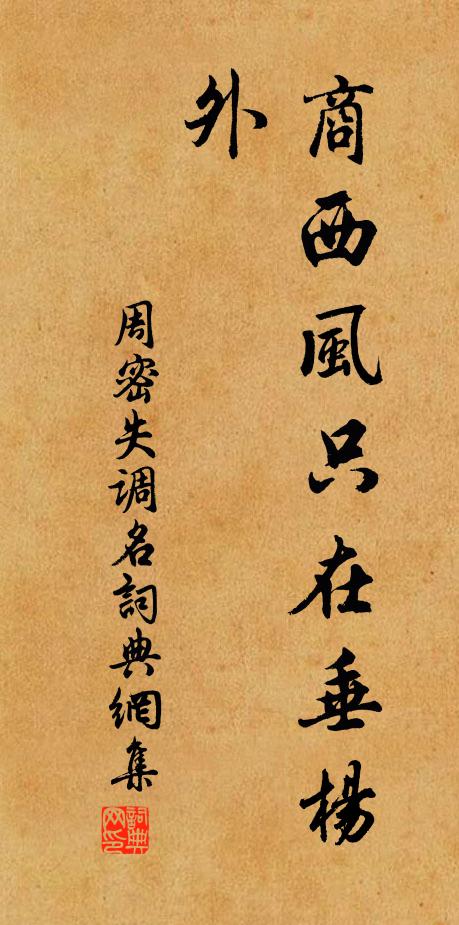 商西風只在垂楊
外
周密失調名詞典網集
詞典网印